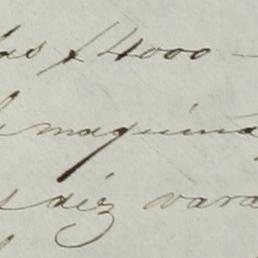 las £4000 —
maquina
diez vara